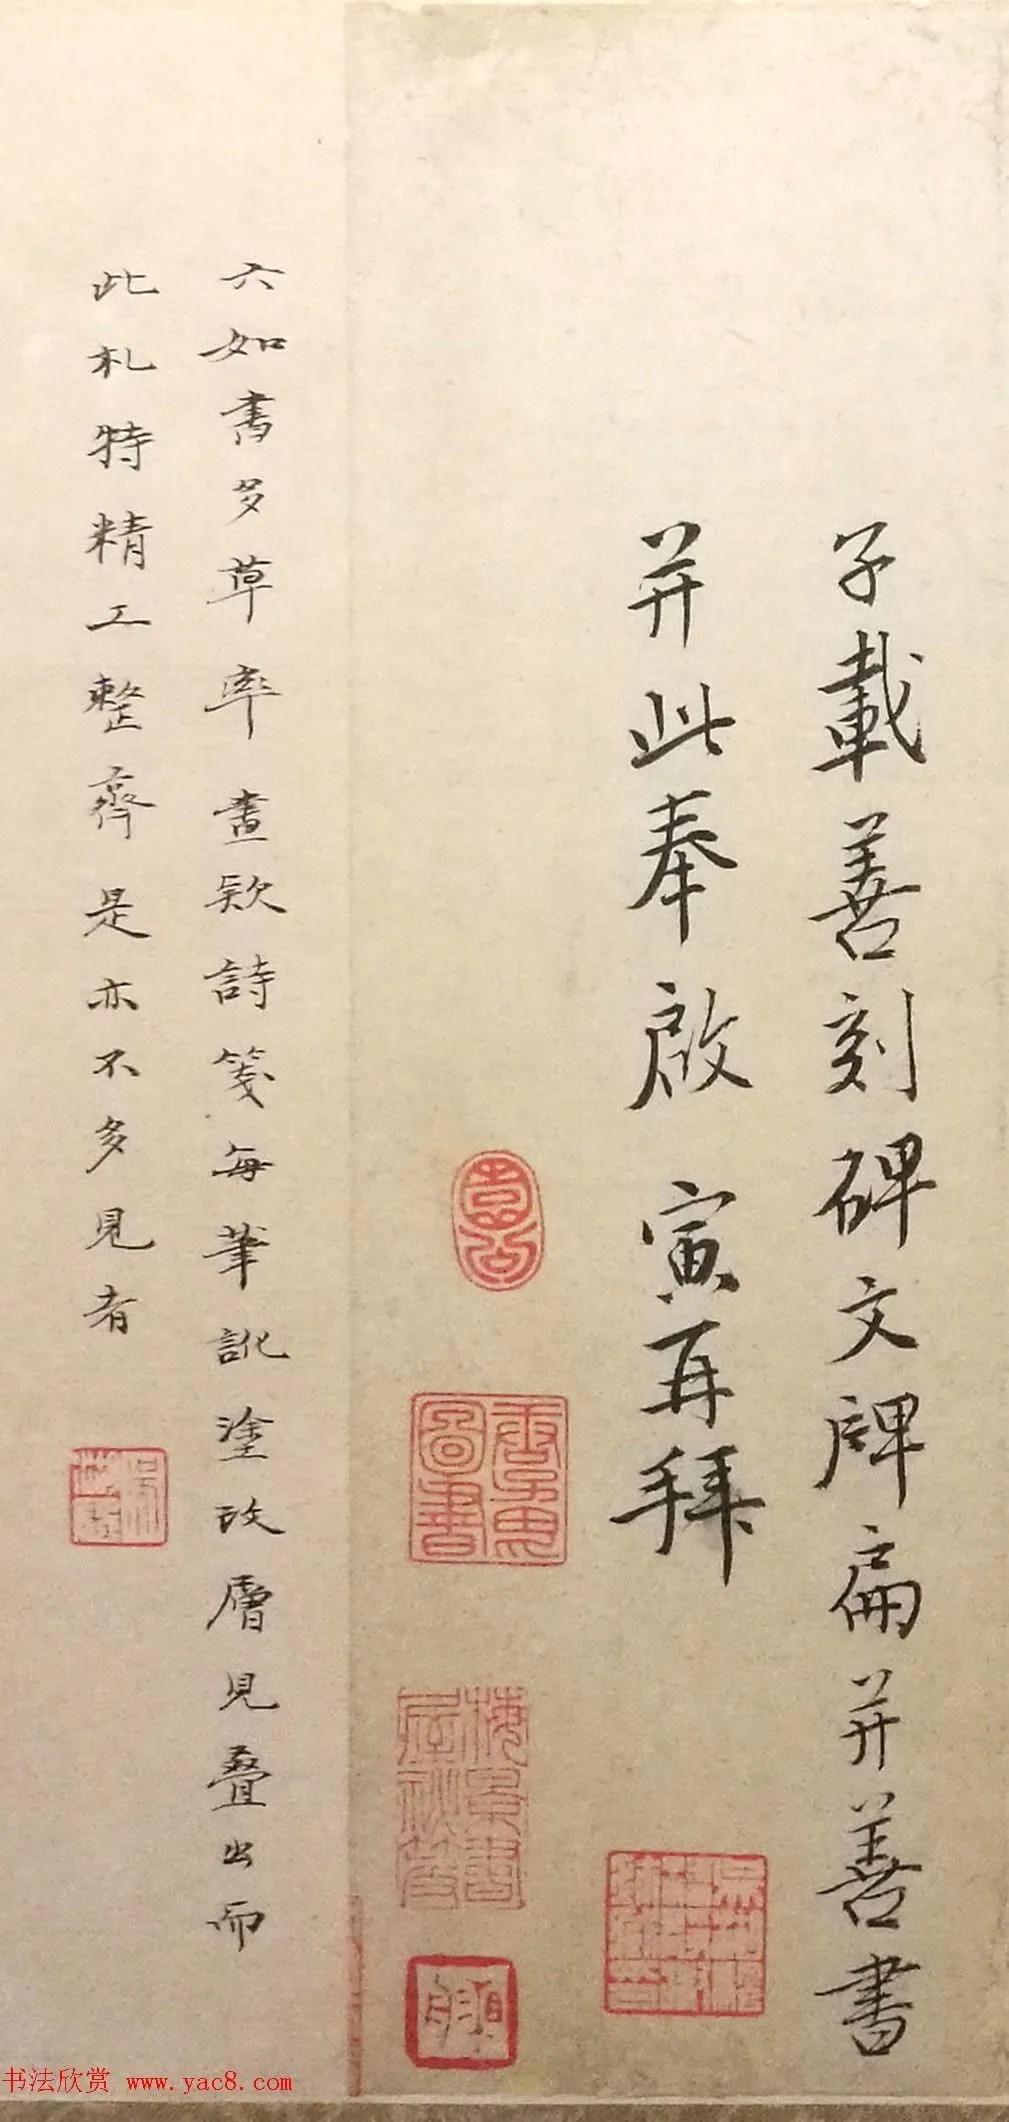 子載善刻碑文牌扁并善書
并此奉啟 寅再拜
六如書多草率畫款詩箋每筆訛塗改層見疊出而
此札特精工整齊是亦不多見者
圖書
梅景書屋秘笈
书法欣赏 www.yac8.com